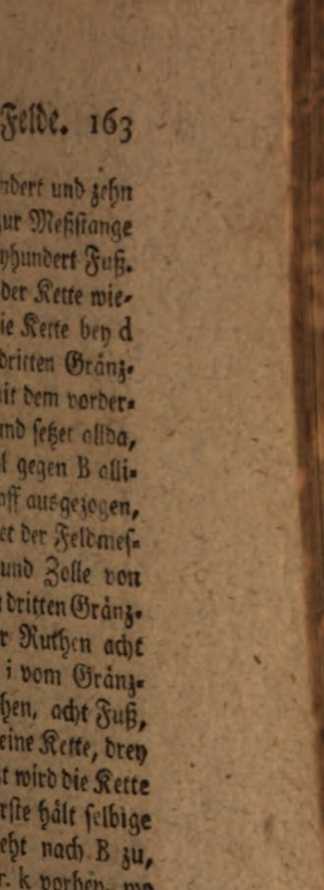 Felde. 163
ndert und zehn
ur Meßstange
yhundert Fuß.
der Kette wie-
ie Kette bey d
dritten Gränz-
it dem vorder-
nd setzet allda,
l gegen B alli-
ff ausgezogen,
et der Feldmes-
und Zolle von
dritten Gränz-
r Ruthen acht
i vom Gränz-
hen, acht Fuß,
eine Kette, drey
t wird die Kette
rste hält selbige
eht nach B zu,
r. k vorhen,